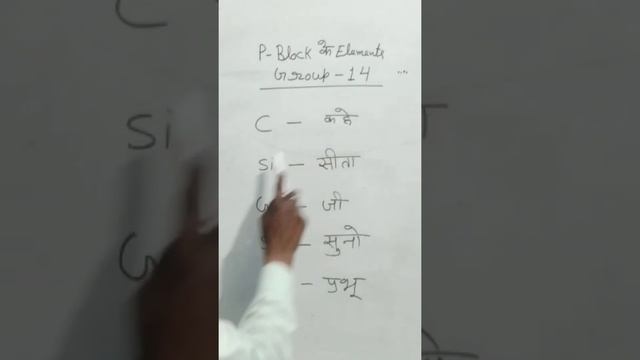 P-Block के Elements
Group-14 ....
C - कहे
Si - सीता
G - जी
S - सुनो
- प्रभू